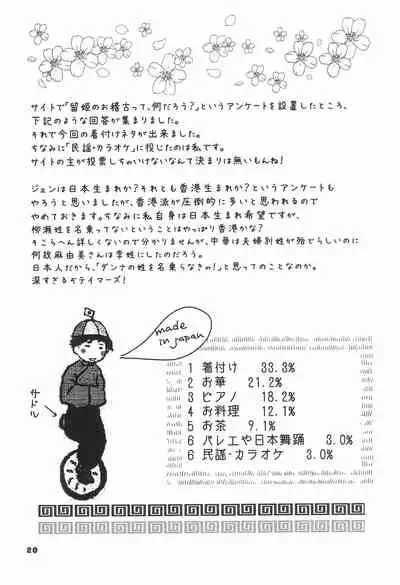 サイトで「留姫のお稽古って、何だろう？」というアンケートを設置したところ、
下記のような回答が集まりました。
それで今回の着付けネタが出来ました。
ちなみに「民謡・カラオケ」に投じたのは私です。
サイトの主が投票しちゃいけないなんて決まりは無いもんね！
ジェンは日本生まれか？それとも香港生まれか？というアンケートも
やろうと思いましたが、香港派が圧倒的に多いと思われるので
やめておきます。ちなみに私自身は日本生まれ希望ですが、
柳瀬姓を名乗ってないということはやっぱり香港かな？
そこらへん詳しくないので分かりませんが、中華は夫婦別姓が殆どらしいのに
何故麻由美さんは李姓にしたのだろう。
日本人だから、「ダンナの姓を名乗らなきゃ！」と思ってのことなのか。
深すぎるゼテイマーズ！
made
in japan
サドル
1 着付け 33.3%
2 お華 21.2%
3 ピアノ 18.2%
4 お料理 12.1%
5 お茶 9.1%
6 バレエや日本舞踊 3.0%
6 民謡・カラオケ 3.0%
20